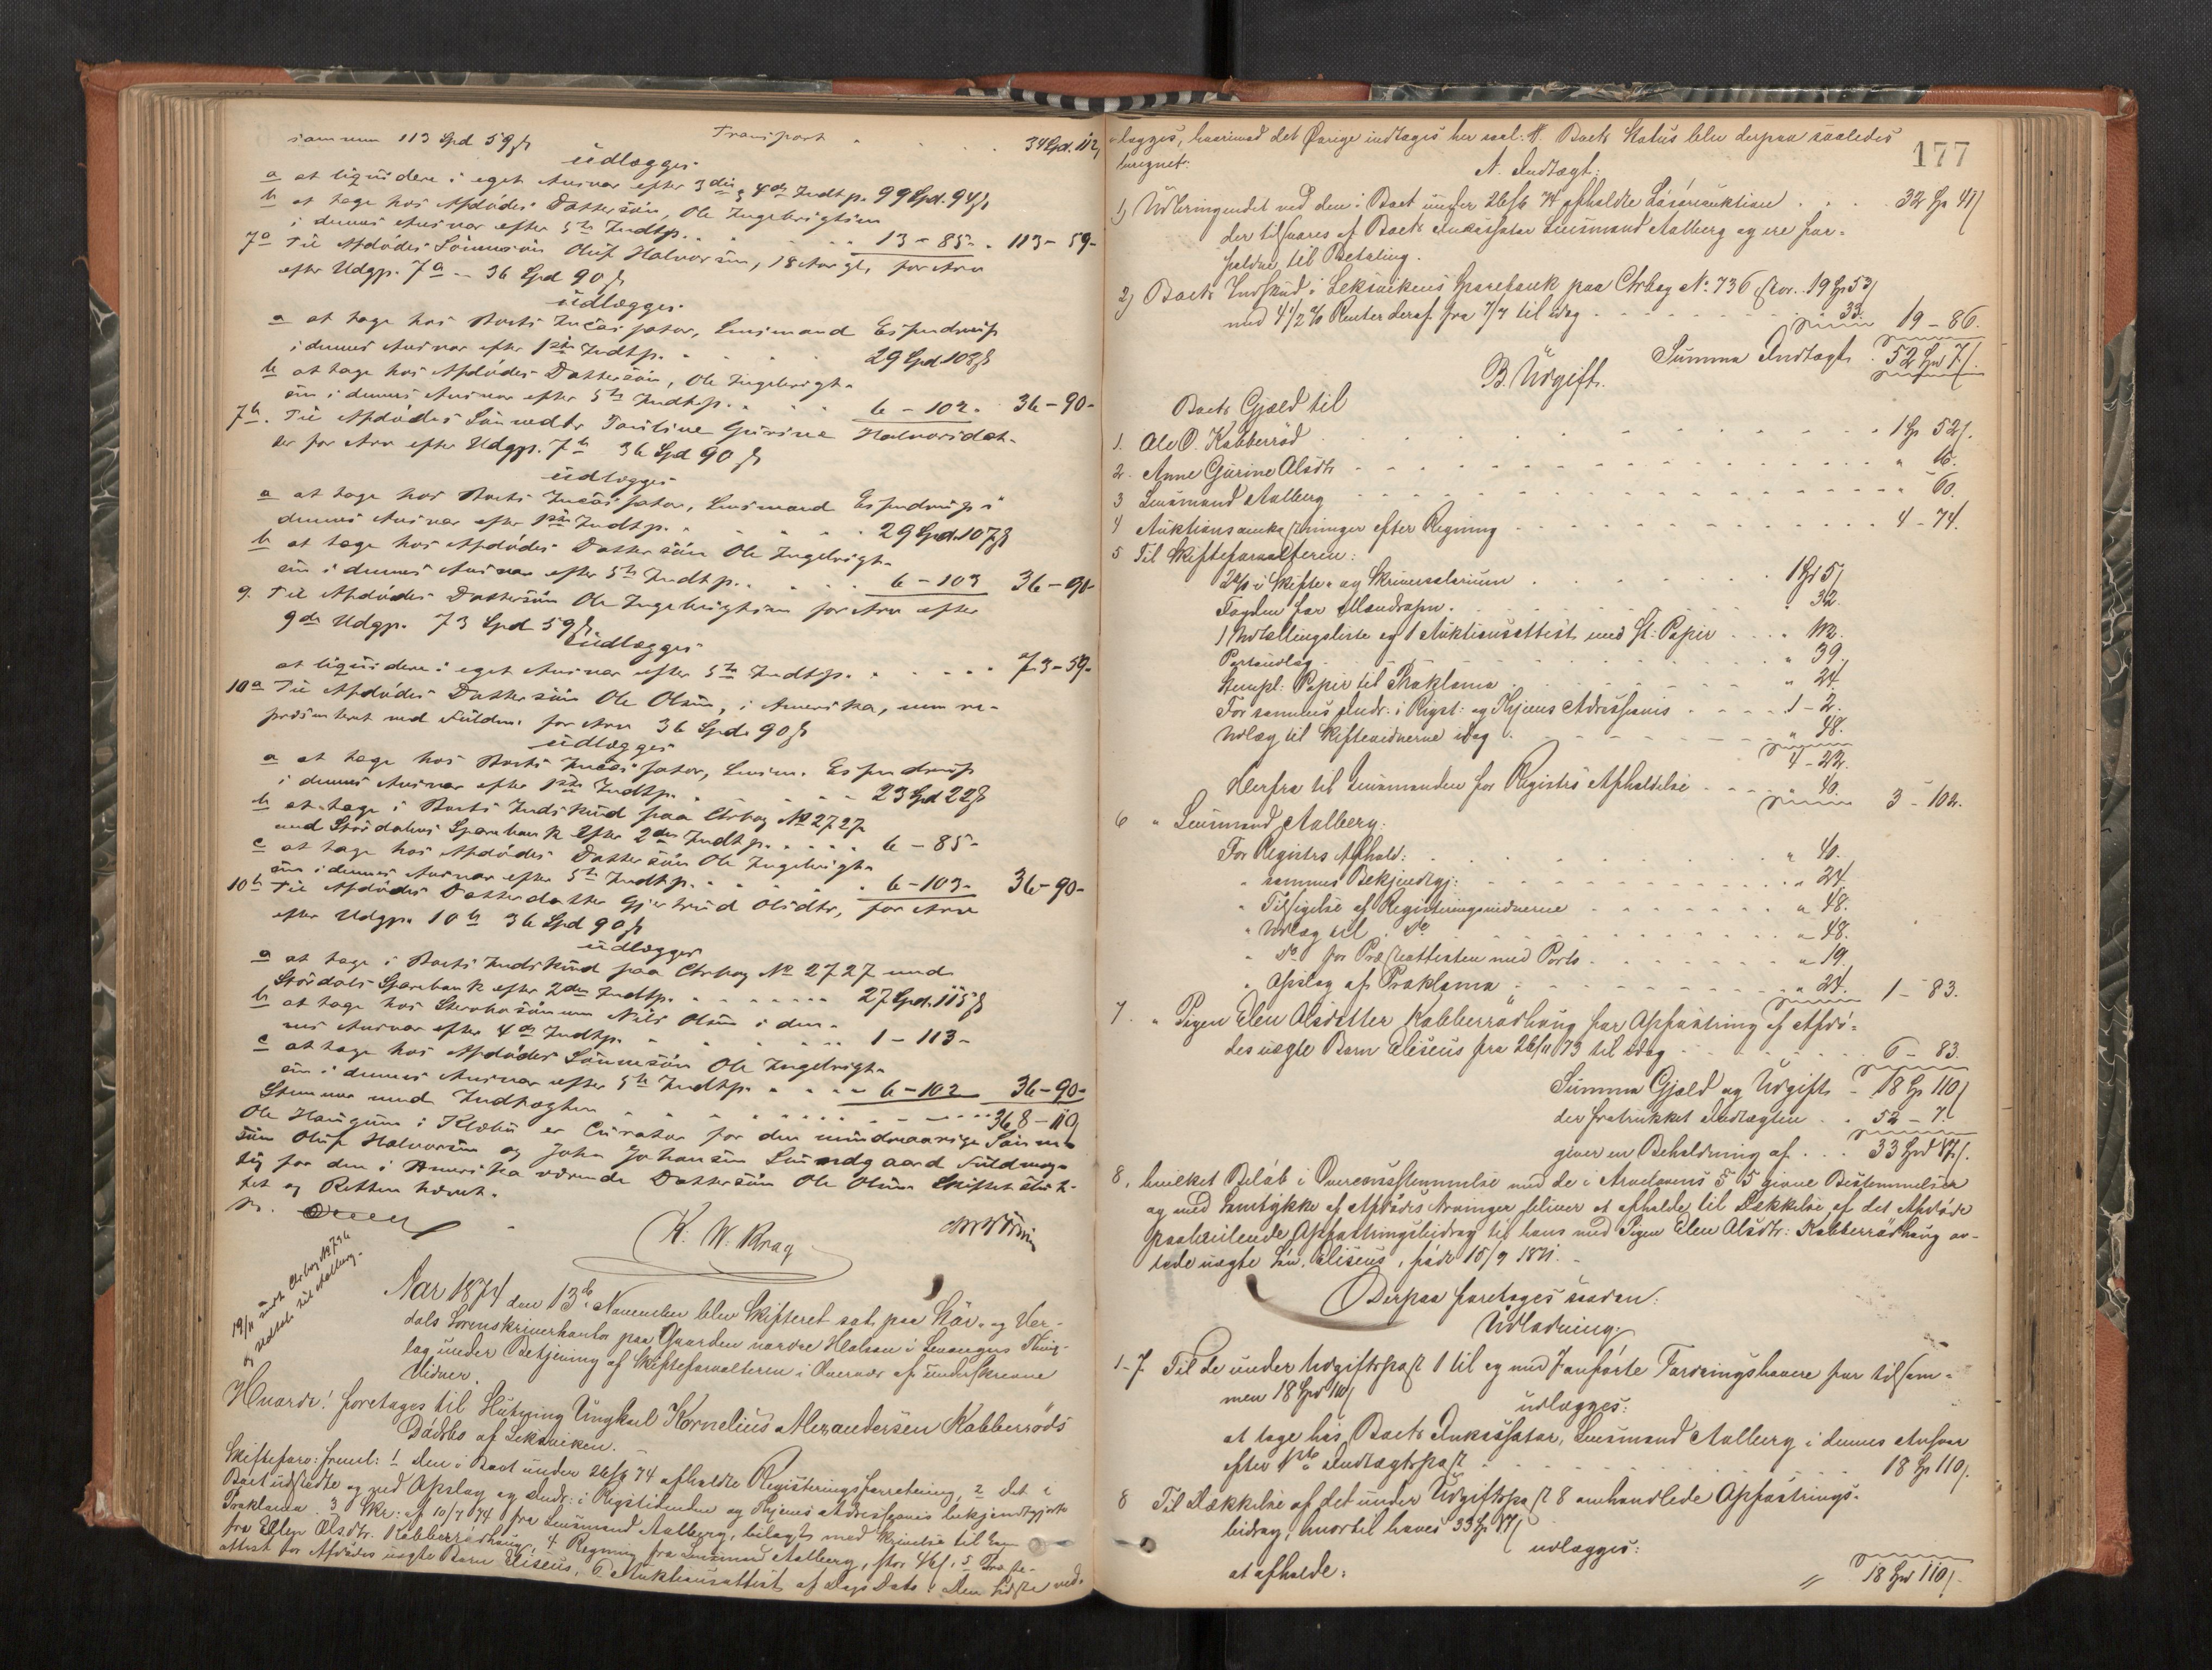 Transport . . . . 34 Spd. 112
sammen 113 Spd 59 ß
udlægges
a at liqvidere i eget Ansvar efter 3die & 4de Indtp. 99 Spd. 94 ß
b at tage hos Afdødes Dattersøn, Ole Ingebrigtsen
i dennes Ansvar efter 5te Indtp. . . . 13 - 85 - . 113 - 59 -
7a Til Afdødes Sønnesøn Oluf Halvorsen, 18 Aar gl, for Arv
efter Udgp. 7a - 36 Spd 90 ß
udlægges
a at tage hos Boets Incassator, Lensmand
i dennes Ansvar efter 1ste Indtp. . . . 29 Spd. 108 ß
b at tage hos Afdødes Dattersøn, Ole Ingebrigt-
sen i dennes Ansvar efter 5te Indtp. . . . 6 - 102 - 36 - 90 -
7b. Til Afdødes Sønnedtr Gurine Halvorsdat-
ter for Arv efter Udgp. 7b 36 Spd 90 ß
udlægges
a at tage hos Boets Incassator, Lensmand i
dennes Ansvar efter 1ste Indtp. . . . 29 Spd. 107 ß
b at tage hos Afdødes Dattersøn Ole Ingebrigt-
sen i dennes Ansvar efter 5te Indtp. . . . 6 - 103 36 - 90 -
9. Til Afdødes Dattersøn Ole Ingebrigtsen for Arv efter
9de Udgp. 73 Spd 59 ß
udlægges
at liqvidere i eget Ansvar efter 5te Indtp. . . . 73 - 59 -
10a Til Afdødes Dattersøn Ole Olsen, i Amerika, nu re-
præsenteret ved Fuldm. for Arv 36 Spd. 90 ß
udlægges
a at tage hos Boets Incassator, Lensm.
i dennes Ansvar efter 1ste Indtp. . . . 23 Spd 22 ß
b at tage i Boets Indskud paa Ctrbog No 2727
ved Stördalens Sparebank efter 2den Indtp. . . . 6 - 85 -
c at tage hos Afdødes Dattersøn Ole Ingebrigt-
sen i dennes Ansvar efter 5te Indtp. . . . 6 - 103 - 36 - 90 -
10b Til Afdødes Datterdatter Gjertrud Olsdtr, for Arv
efter Udgp. 10b 36 Spd 90 ß
udlægges
a at tage i Boets Indskud paa Ctrbog No 2727 ved
Stördals Sparebank efter 2den Indtp. . . . 27 Spd. 115 ß
b at tage hos Nils Olsen i den-
nes Ansvar efter 4de Indtp. . . . 1 - 113 -
c at tage hos Afdødes Sønnesøn Ole Ingebrigt-
sen i dennes Ansvar efter 5te Indtp. . . . 6 - 102 36 - 90 -
Stemmer med Indtægten . . . 368 - 110
Ole Haugum i Klæbu er Curator for den mindreaarige Sønne-
søn Oluf Halvorsen og John Johansen Lundgaard Fuldmæg-
tig for den i Amerika værende Dattersøn Ole Olsen. Skiftet slut-
tet og Retten hævet.
K. W. Krag
19/11 Ctrbog No 736
Aalberg.
Aar 1874 den 13de November blev Skifteret sat paa Stør- og Ver-
dals Sorenskriverkontor paa Gaarden nordre Halsan i Levangers Thing-
lag under Betjening af Skifteforvalteren i Overvær af underskrevne
Vidner.
Hvorda! foretoges til Slutning Ungkarl Kornelius Alexandersen Kabberröds
Dödsbo af Leksviken.
Skifteforv: freml: 1 den i Boet under 26/6 74 afholdte Registreringsforretning, 2 det i
Boet udstedte og ved Opslag og Indr: i Rigstidenden og Thjems Adresseavis bekjendtgjorte
Proklama 3 Skr: af 10/7 74 fra Lensmand Aalberg, bilagt med Skrivelse til ham
fra Ellen Olsdtr. Kabberrödhaug, 4 Regning fra Lensmand Aalberg, stor 46 ß, 5 Præste-
attest for Afdødes uægte Barn Eliseus, 6 Auktionsattest af Dags Dato. Den sidste ved-
177
lægges, hvorimod det Øvrige indtages her saal: #. Boets Status blev derpaa saaledes
beregnet:
A. Indtægt:
1) Udbringendet ved den i Boet under 26/6 74 afholdte Løsøreauktion . . . 32 Sp 41 ß
der tilsvares af Boets Inkassator Lensmand Aalberg og ere for-
faldne til Betaling.
2) Boets Indskud i Leksvikens Sparebank paa Ctrbog No. 736, stor . 19 Sp 53 ß
med 4 1/2 % Renter deraf fra 7/7 til idag . . . 33. 19 - 86.
Summa Indtægt . 52 Spd 7 ß.
B. Udgift.
Boets Gjæld til
1. Ole O. Kabberröd . . . 1 Sp 52 ß.
2. Anne Gurine Olsdtr . . . " 16.
3 Lensmand Aalberg . . . " 60.
4 Auktionsomkostninger efter Regning . . . 4 - 74.
5 Til Skifteforvalteren:
2 % i Skifte- og Skriversalarium . . . 1 Spd 5 ß
Fogden for Mandtalspn. . . . " 32.
1 Udtællingsliste og 1 Auktionsattest med St: Papir . . . " 112.
Portoudlæg . . . " 39.
Stempl: Papir til Proklama . . . " 24.
For sammes Indr: i Rigst: og Thjems Adresseavis . . . 1 - 2.
Udlæg til Skiftevidnerne idag . . . " 48.
4 - 22.
Herfra til Lensmanden for Registrs Afholdelse . . . " 40. 3 - 102.
6 " Lensmand Aalberg:
For Registrs Afhold: . . . " 40.
" sammes Bekjendtgj: . . . " 24.
" Tilsigelse af Registreringsvidnerne . . . " 48.
" Udlæg til Do . . . " 48.
" Do for Præsteattesten med Porto . . . " 19.
" Opslag af Proklama . . . " 24. 1 - 83.
7. " Pigen Elen Olsdatter Kabberrödhaug for Opfostring af Afdö-
des uægte Barn Eliseus fra 26/11 73 til idag . . . 6 - 83.
Summa Gjæld og Udgift - 18 Sp 110 ß
der fratrukket Indtægten . . 52 - 7.
giver en Beholdning af . . . 33 Spd 17 ß.
8, hvilket Beløb i Overensstemmelse med de i Arvelovens § 5 givne Bestemmelser
og med Samtykke af Afdødes Arvinger bliver at afholde til Dækkelse af det Afdøde
paahvilende Opfostringsbidrag til hans med Pigen Elen Olsdtr: Kabberrödhaug av-
lede uægte Søn, Eliseus, født 15/7 1871. -
Derpaa foretoges saadan:
Udlodning.
1-7. Til de under Udgiftspost 1 til og med 7 anførte Fordringshavere for tilsam-
men 18 Spd 110 ß
udlægges:
at tage hos Boets Inkassator, Lensmand Aalberg i dennes Ansvar
efter 1ste Indtægtspost . . . 18 Sp 110 ß.
8 Til Dækkelse af det under Udgiftspost 8 omhandlede Opfostrings-
bidrag, hvortil haves 33 Sp 17 ß
udlægges:
at afholde:
" 18 Spd 110 ß.